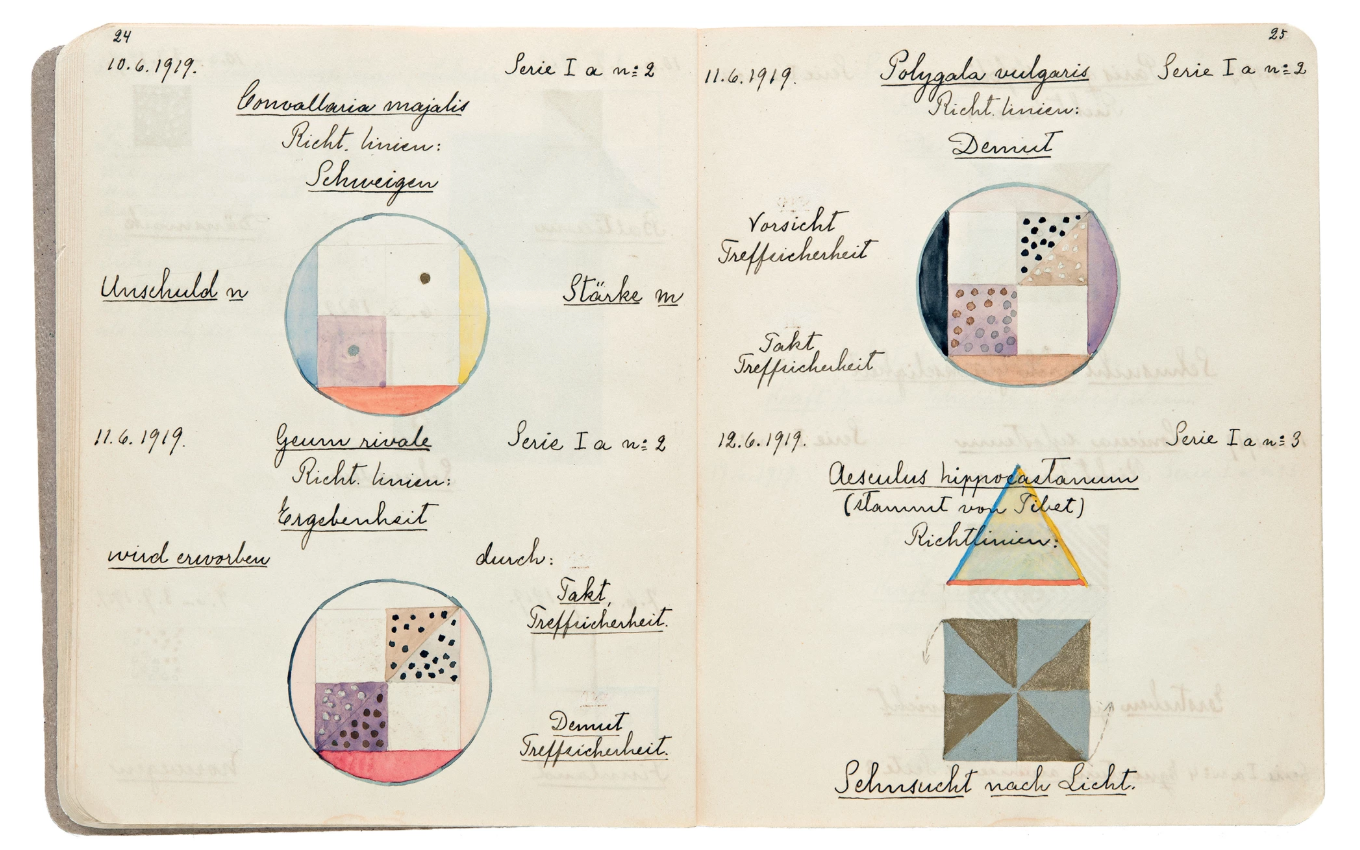 24
10.6.1919. Serie I a n:o 2
Convallaria majalis
Richt. linien:
Schweigen
Unschuld n Stärke m
11.6.1919. Geum rivale Serie I a n:o 2
Richt. linien:
Ergebenheit
wird erworben durch:
Takt,
Treffsicherheit.
Demut
Treffsicherheit.
25
11.6.1919. Polygala vulgaris Serie I a n:o 2
Richt. linien:
Demut
Vorsicht
Treffsicherheit
Takt
Treffsicherheit
12.6.1919. Serie I a n:o 3
Aesculus hippocastanum
(stammt von Tibet)
Richtlinien:
Sehnsucht nach Licht.